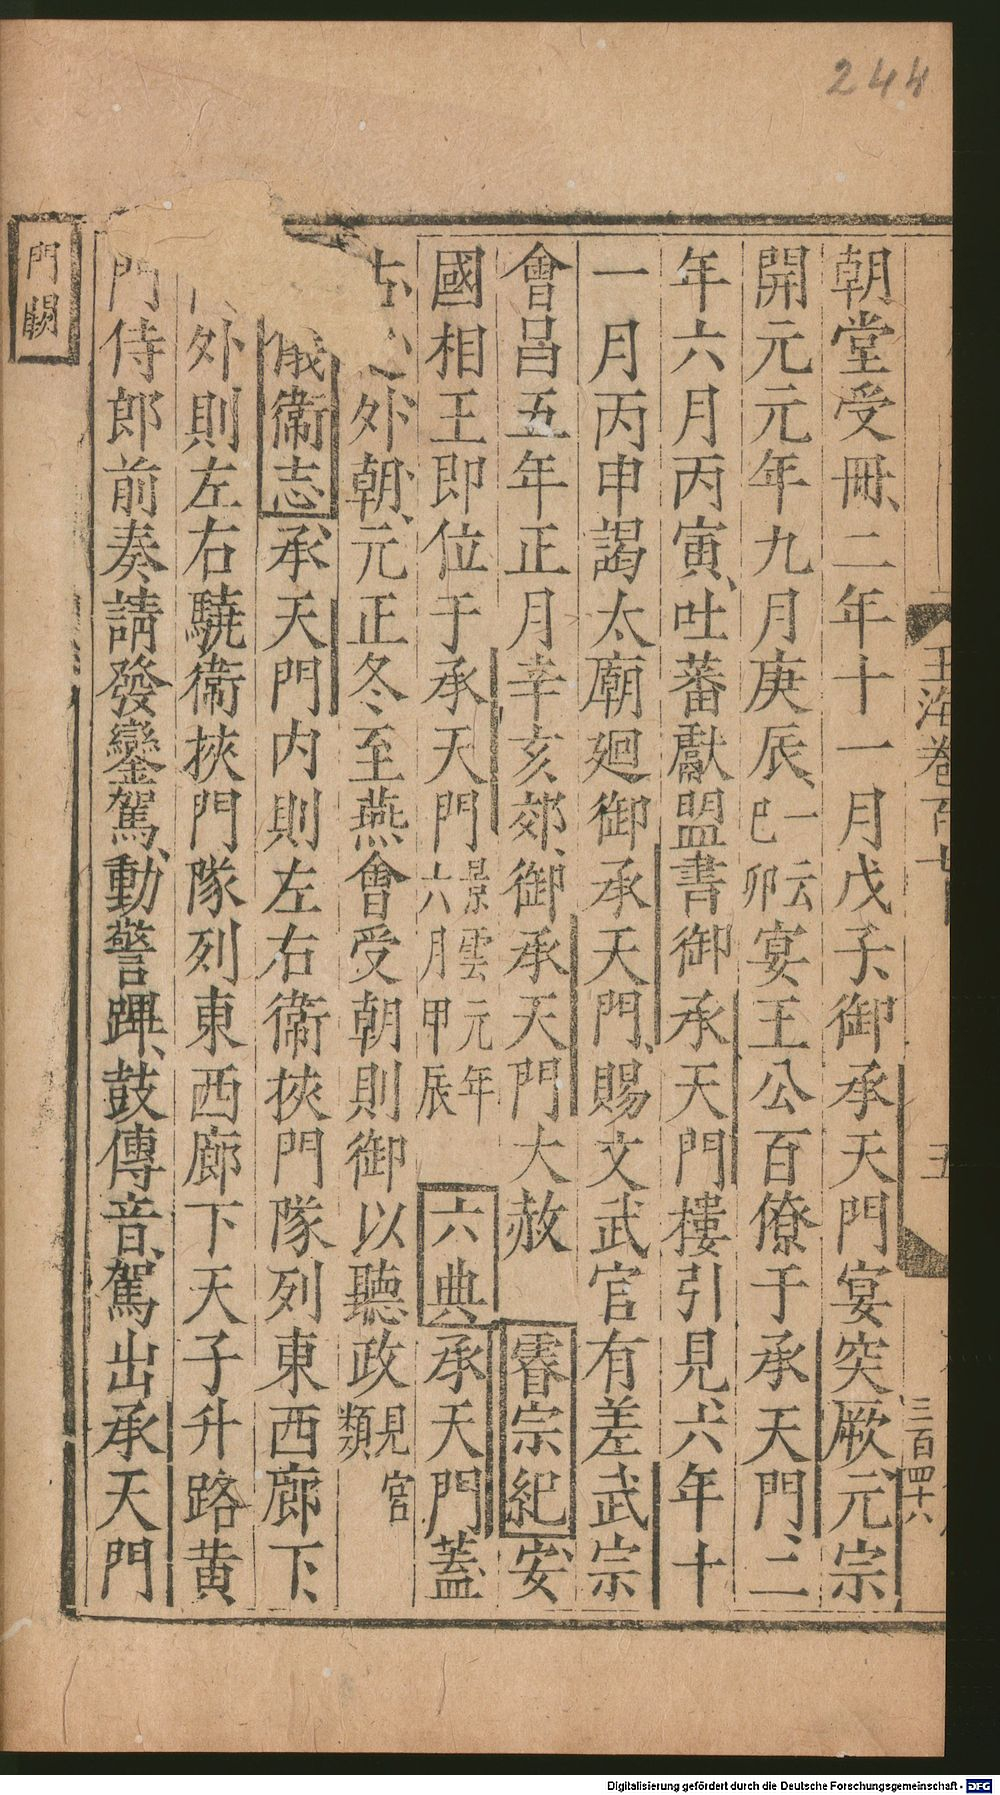 244
朝堂受冊、二年十一月戊子、御承天門宴突厥、元宗
開元元年九月庚辰、一云己卯宴王公百僚于承天門、二
年六月丙寅、吐蕃獻盟書御承天門樓引見、六年十
一月丙申謁太廟廻御承天門、賜文武官有差武宗
會昌五年正月幸亥郊、御承天門大赦 睿宗紀安
國相王即位于承天門景雲元年六月甲辰 六典承天門、蓋
古之外朝、元正冬至燕會受朝則御以聽政見官類
儀衛志承天門内則左右衛挾門隊列東西廊下、
外則左右驍衛挾門隊列東西廊下天子升路黄
門侍郎前奏、請發鑾駕、動警蹕、鼓傳音、駕出承天門
門闕
玉海卷百七十
五
三百四十六
Digitalisierung gefördert durch die Deutsche Forschungsgemeinschaft - DFG